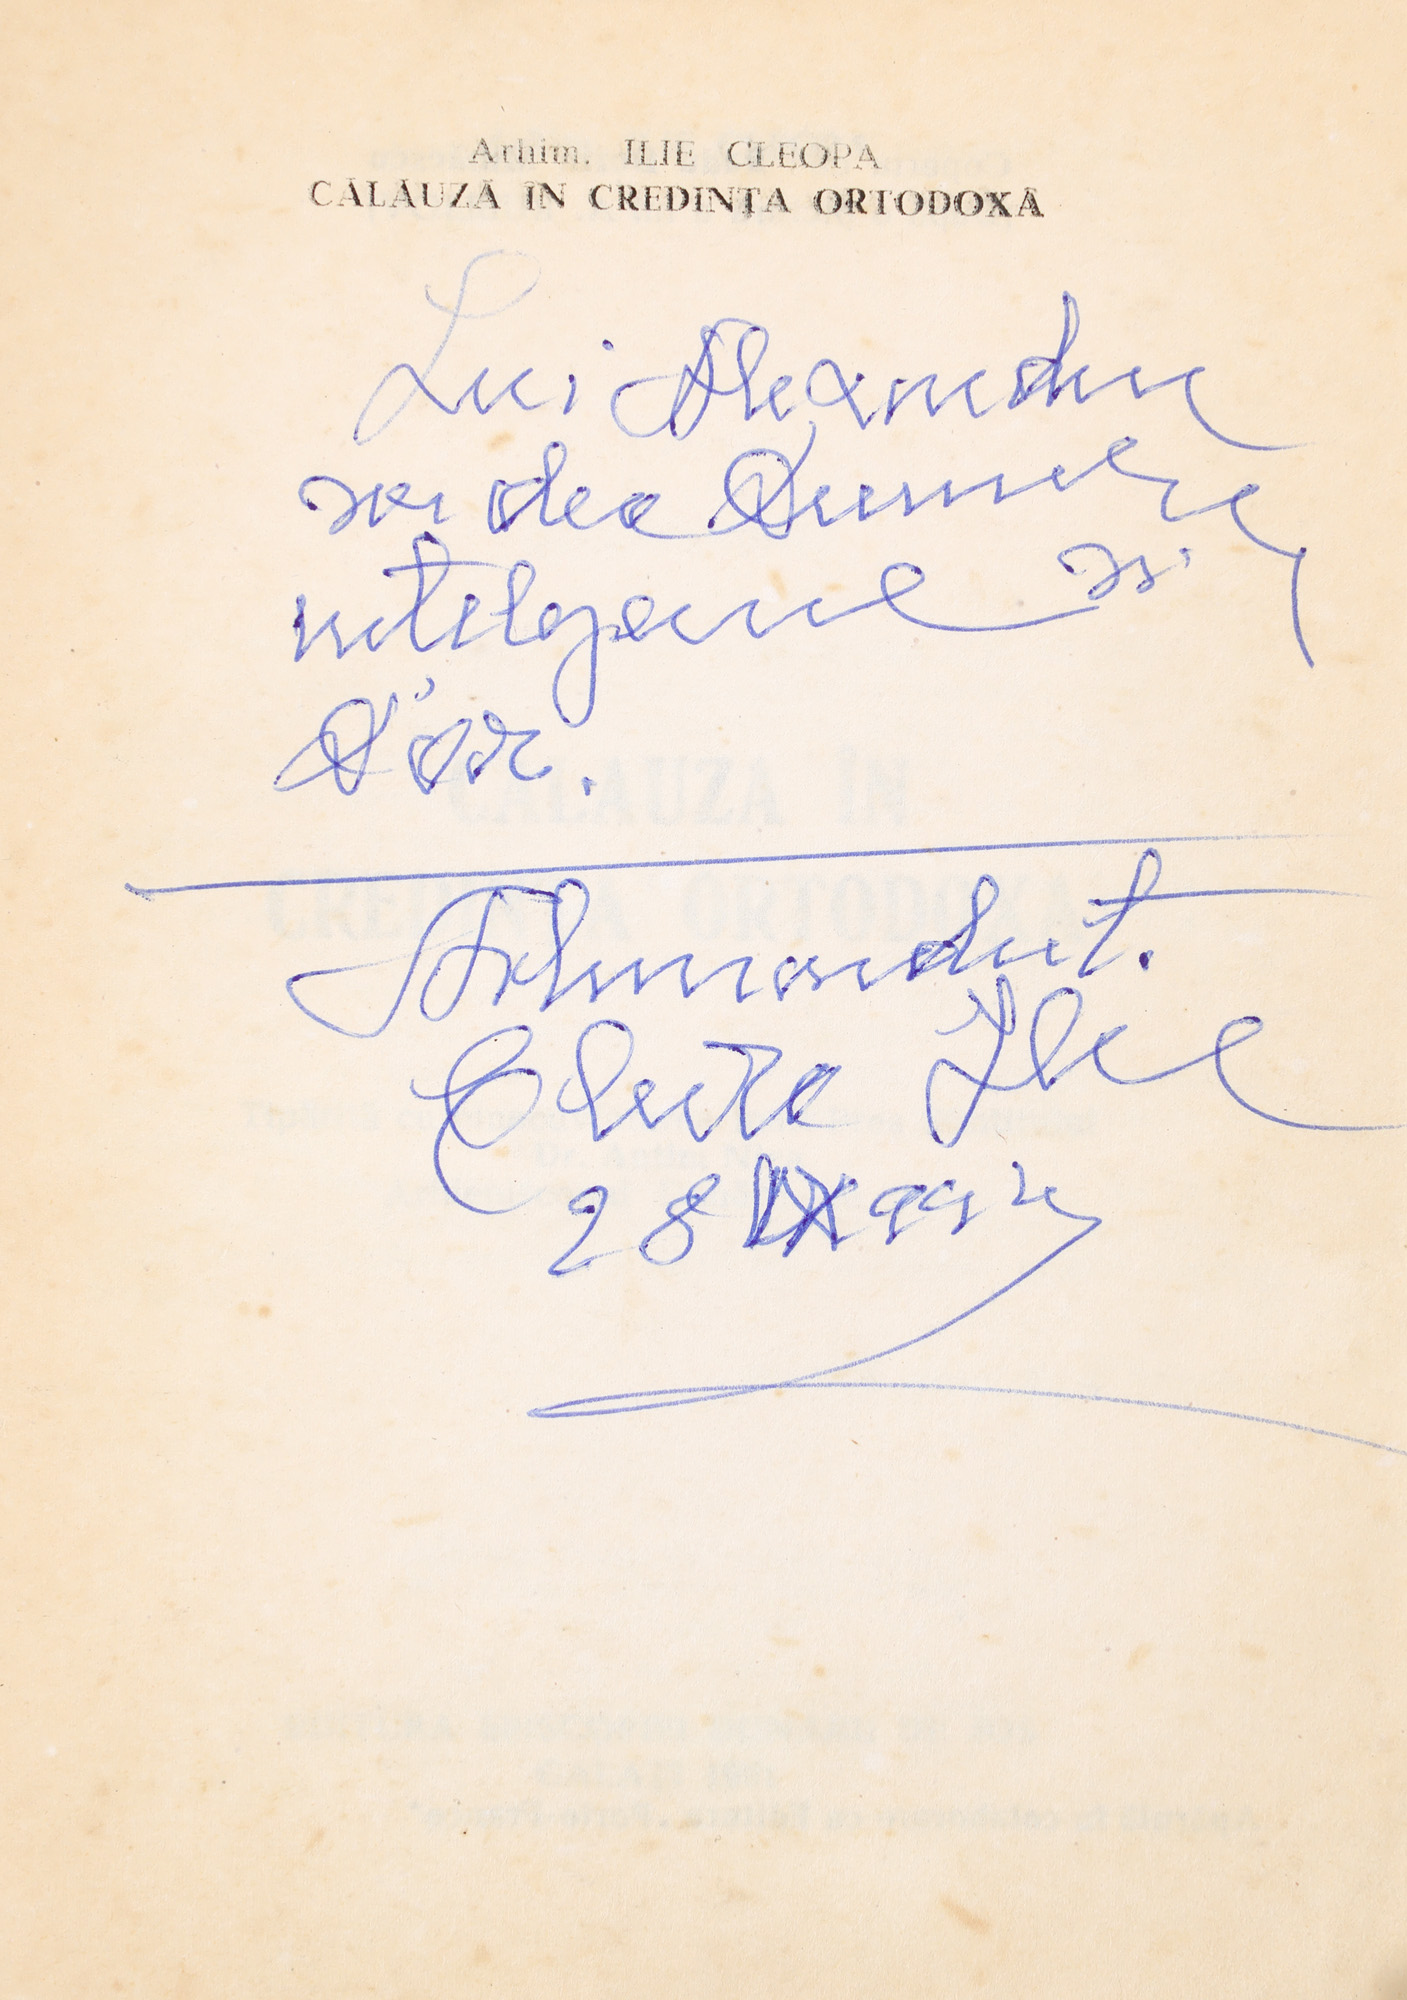 Arhim. ILIE CLEOPA
CĂLĂUZĂ ÎN CREDINȚA ORTODOXĂ
Lui Alexandru
sa dea Dumnezeu
intelegerea si
Arhimandrit.
Cleopa Ilie
28 IX 992